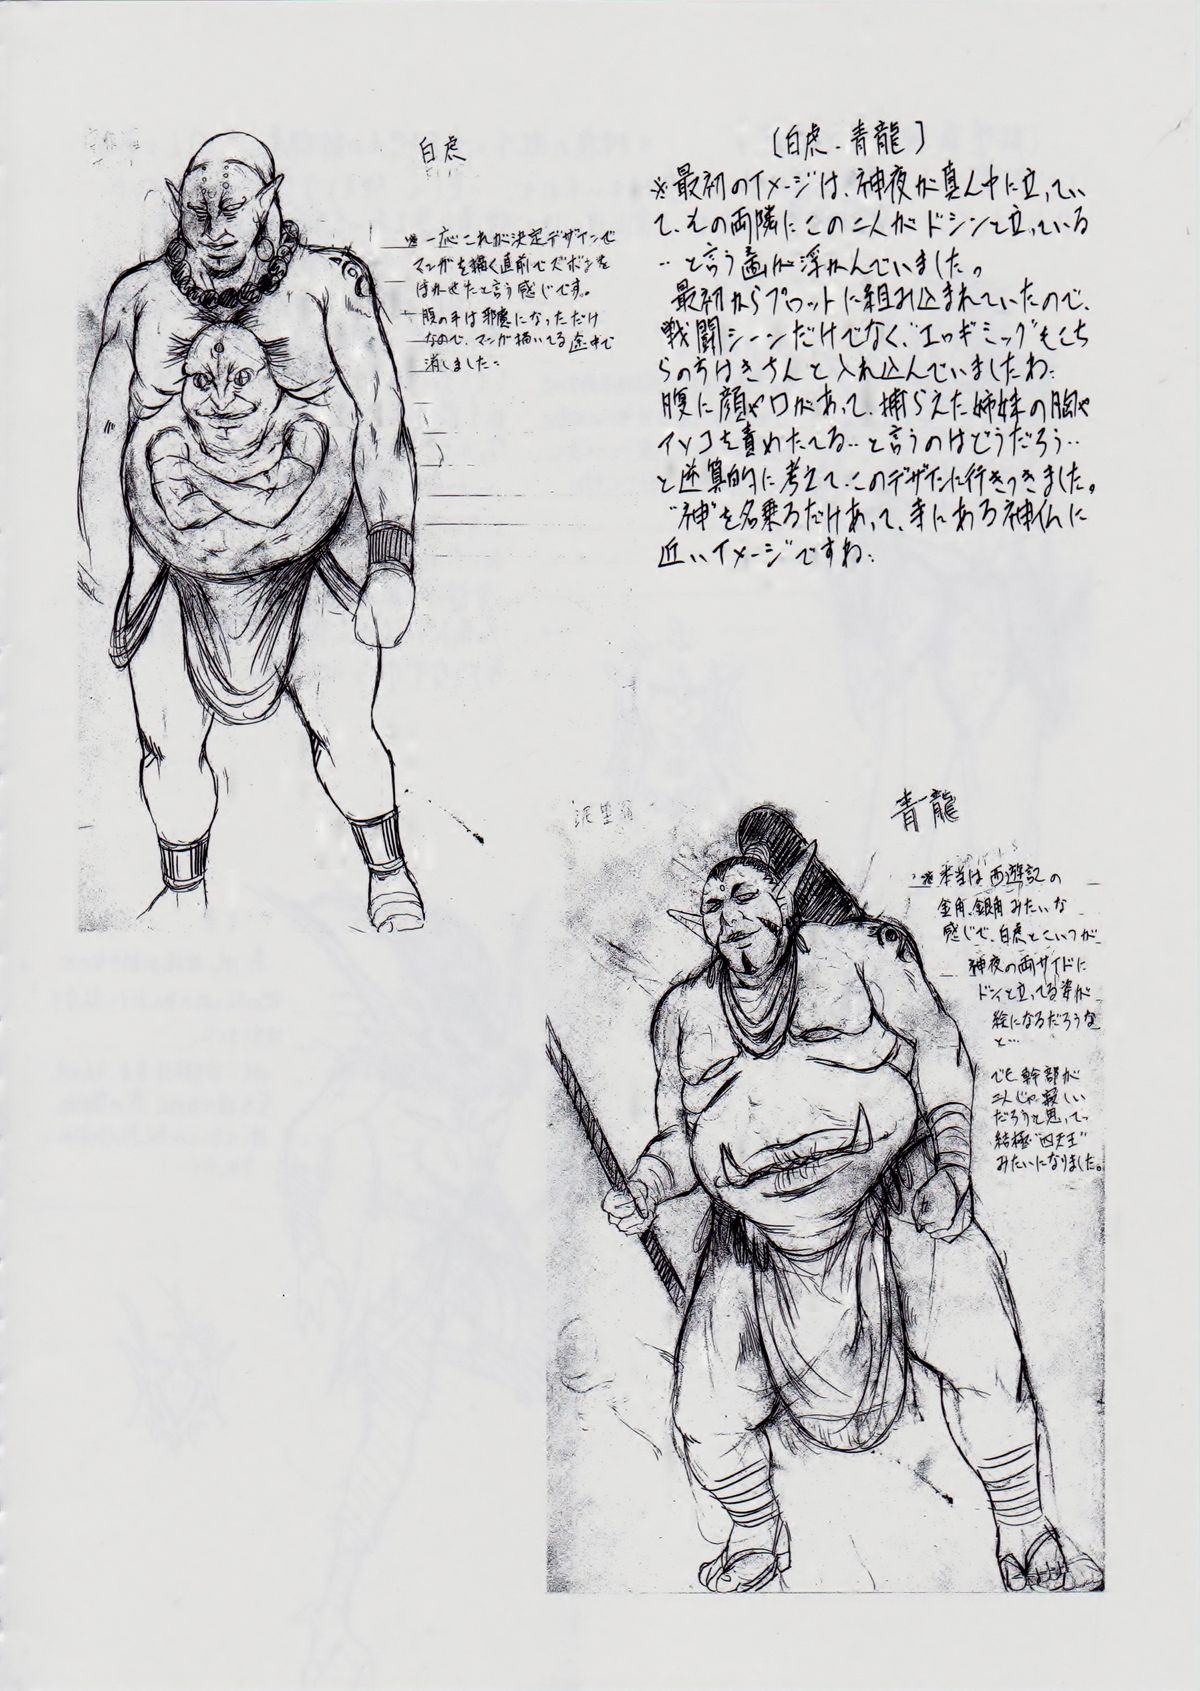 白虎
※一応これが決定デザインで
マンガを描く直前でズボンを
はかせたと言う感じです。
腹の手は邪魔になっただけ
なので、マンガ描いてる途中で
消しました。
[白虎・青龍]
※最初のイメージは、神夜が真ん中に立ってい
て、その両隣にこの二人がドシンと立っている
‥と言う画が浮かんでいました。
最初からプロットに組み込まれていたので、
戦闘シーンだけでなく、"エロギミック"もこち
らのちはきさんと入れ込んでいましたね。
腹に顔や口があって、捕らえた姉妹の胸や
アソコを責めたてる‥と言うのはどうだろう‥
と逆算的に考えて、このデザインに行きつきました。
"神"を名乗るだけあって、寺にある神仏に
近いイメージですね。
青龍
※本当は西遊記の
金角、銀角みたいな
感じで、白虎とこいつが
神夜の両サイドに
ドンと立ってる姿が
絵になるだろうな
と…
でも幹部が
二人じゃ寂しい
だろうと思って
結極"四天王"
みたいになりました。